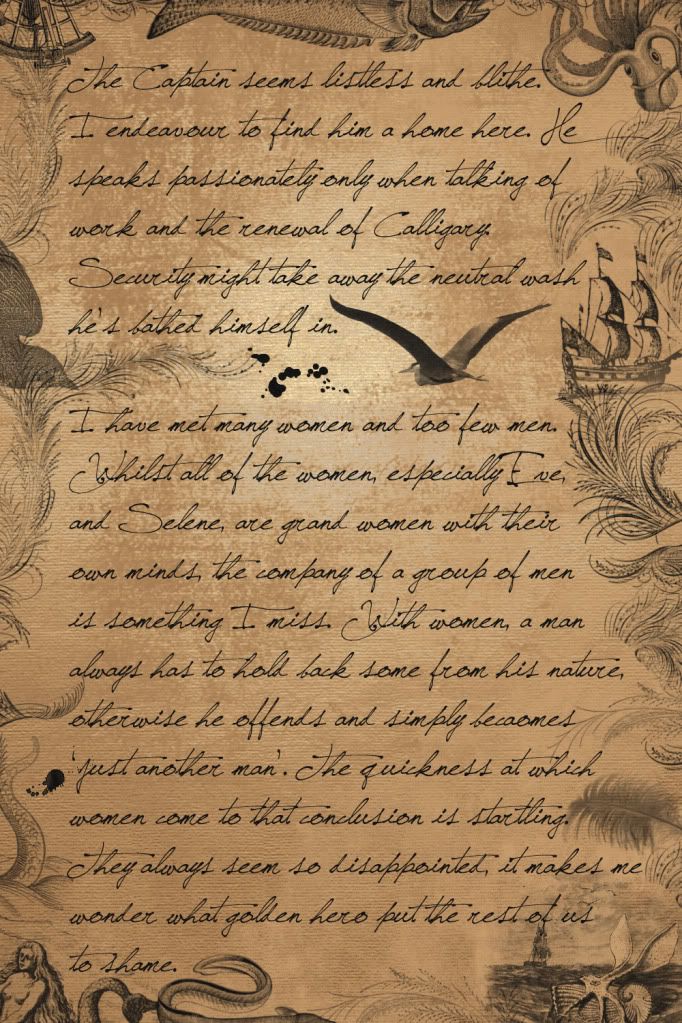 The Captain seems listless and blithe.
I endeavour to find him a home here. He
speaks passionately only when talking of
work and the renewal of Calligary.
Security might take away the neutral wash
he's bathed himself in.
I have met many women and too few men.
Whilst all of the women, especially Eve,
and Selene, are grand women with their
own minds, the company of a group of men
is something I miss. With women, a man
always has to hold back some from his nature,
otherwise he offends and simply becaomes
'just another man'. The quickness at which
women come to that conclusion is startling.
They always seem so disappointed, it makes me
wonder what golden hero put the rest of us
to shame.